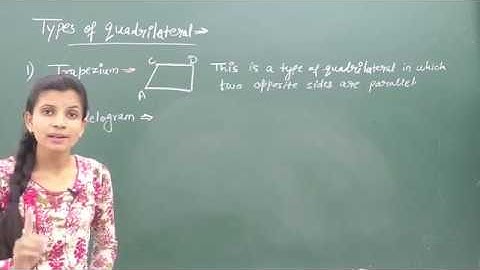 Types of quadrilateral →
1) Trapezium ⇒ This is a type of quadrilateral in which
two opposite sides are parallel
C D
A
logram ⇒